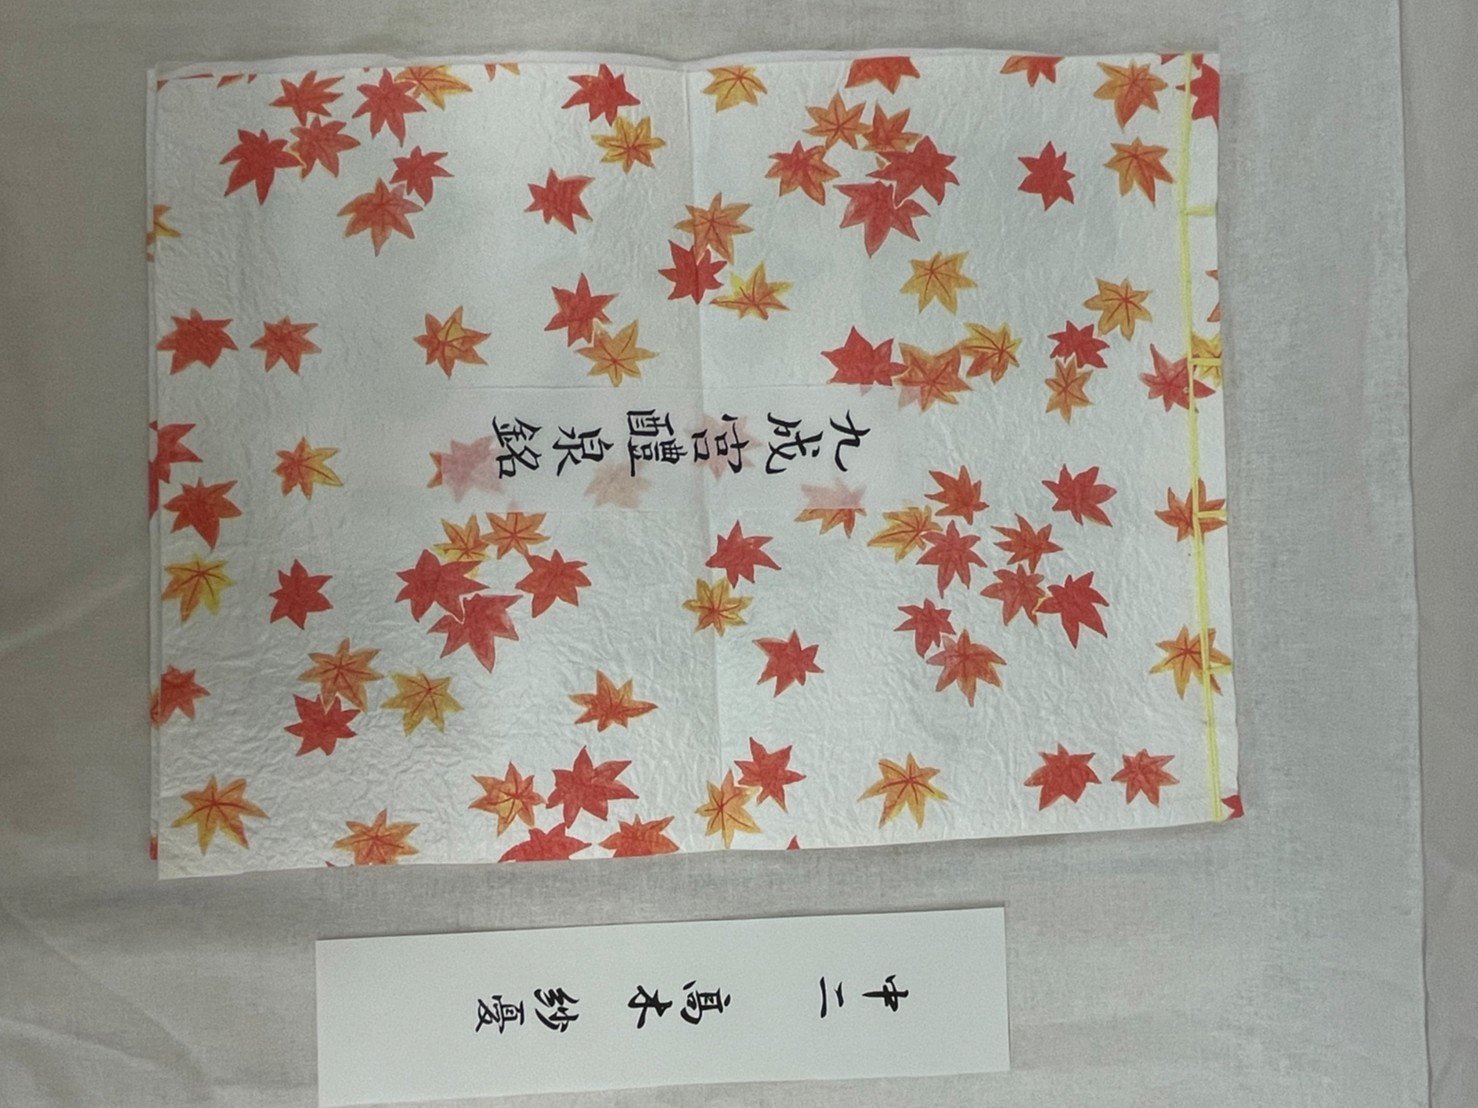 九成宮醴泉銘
中二 髙木 紗憂